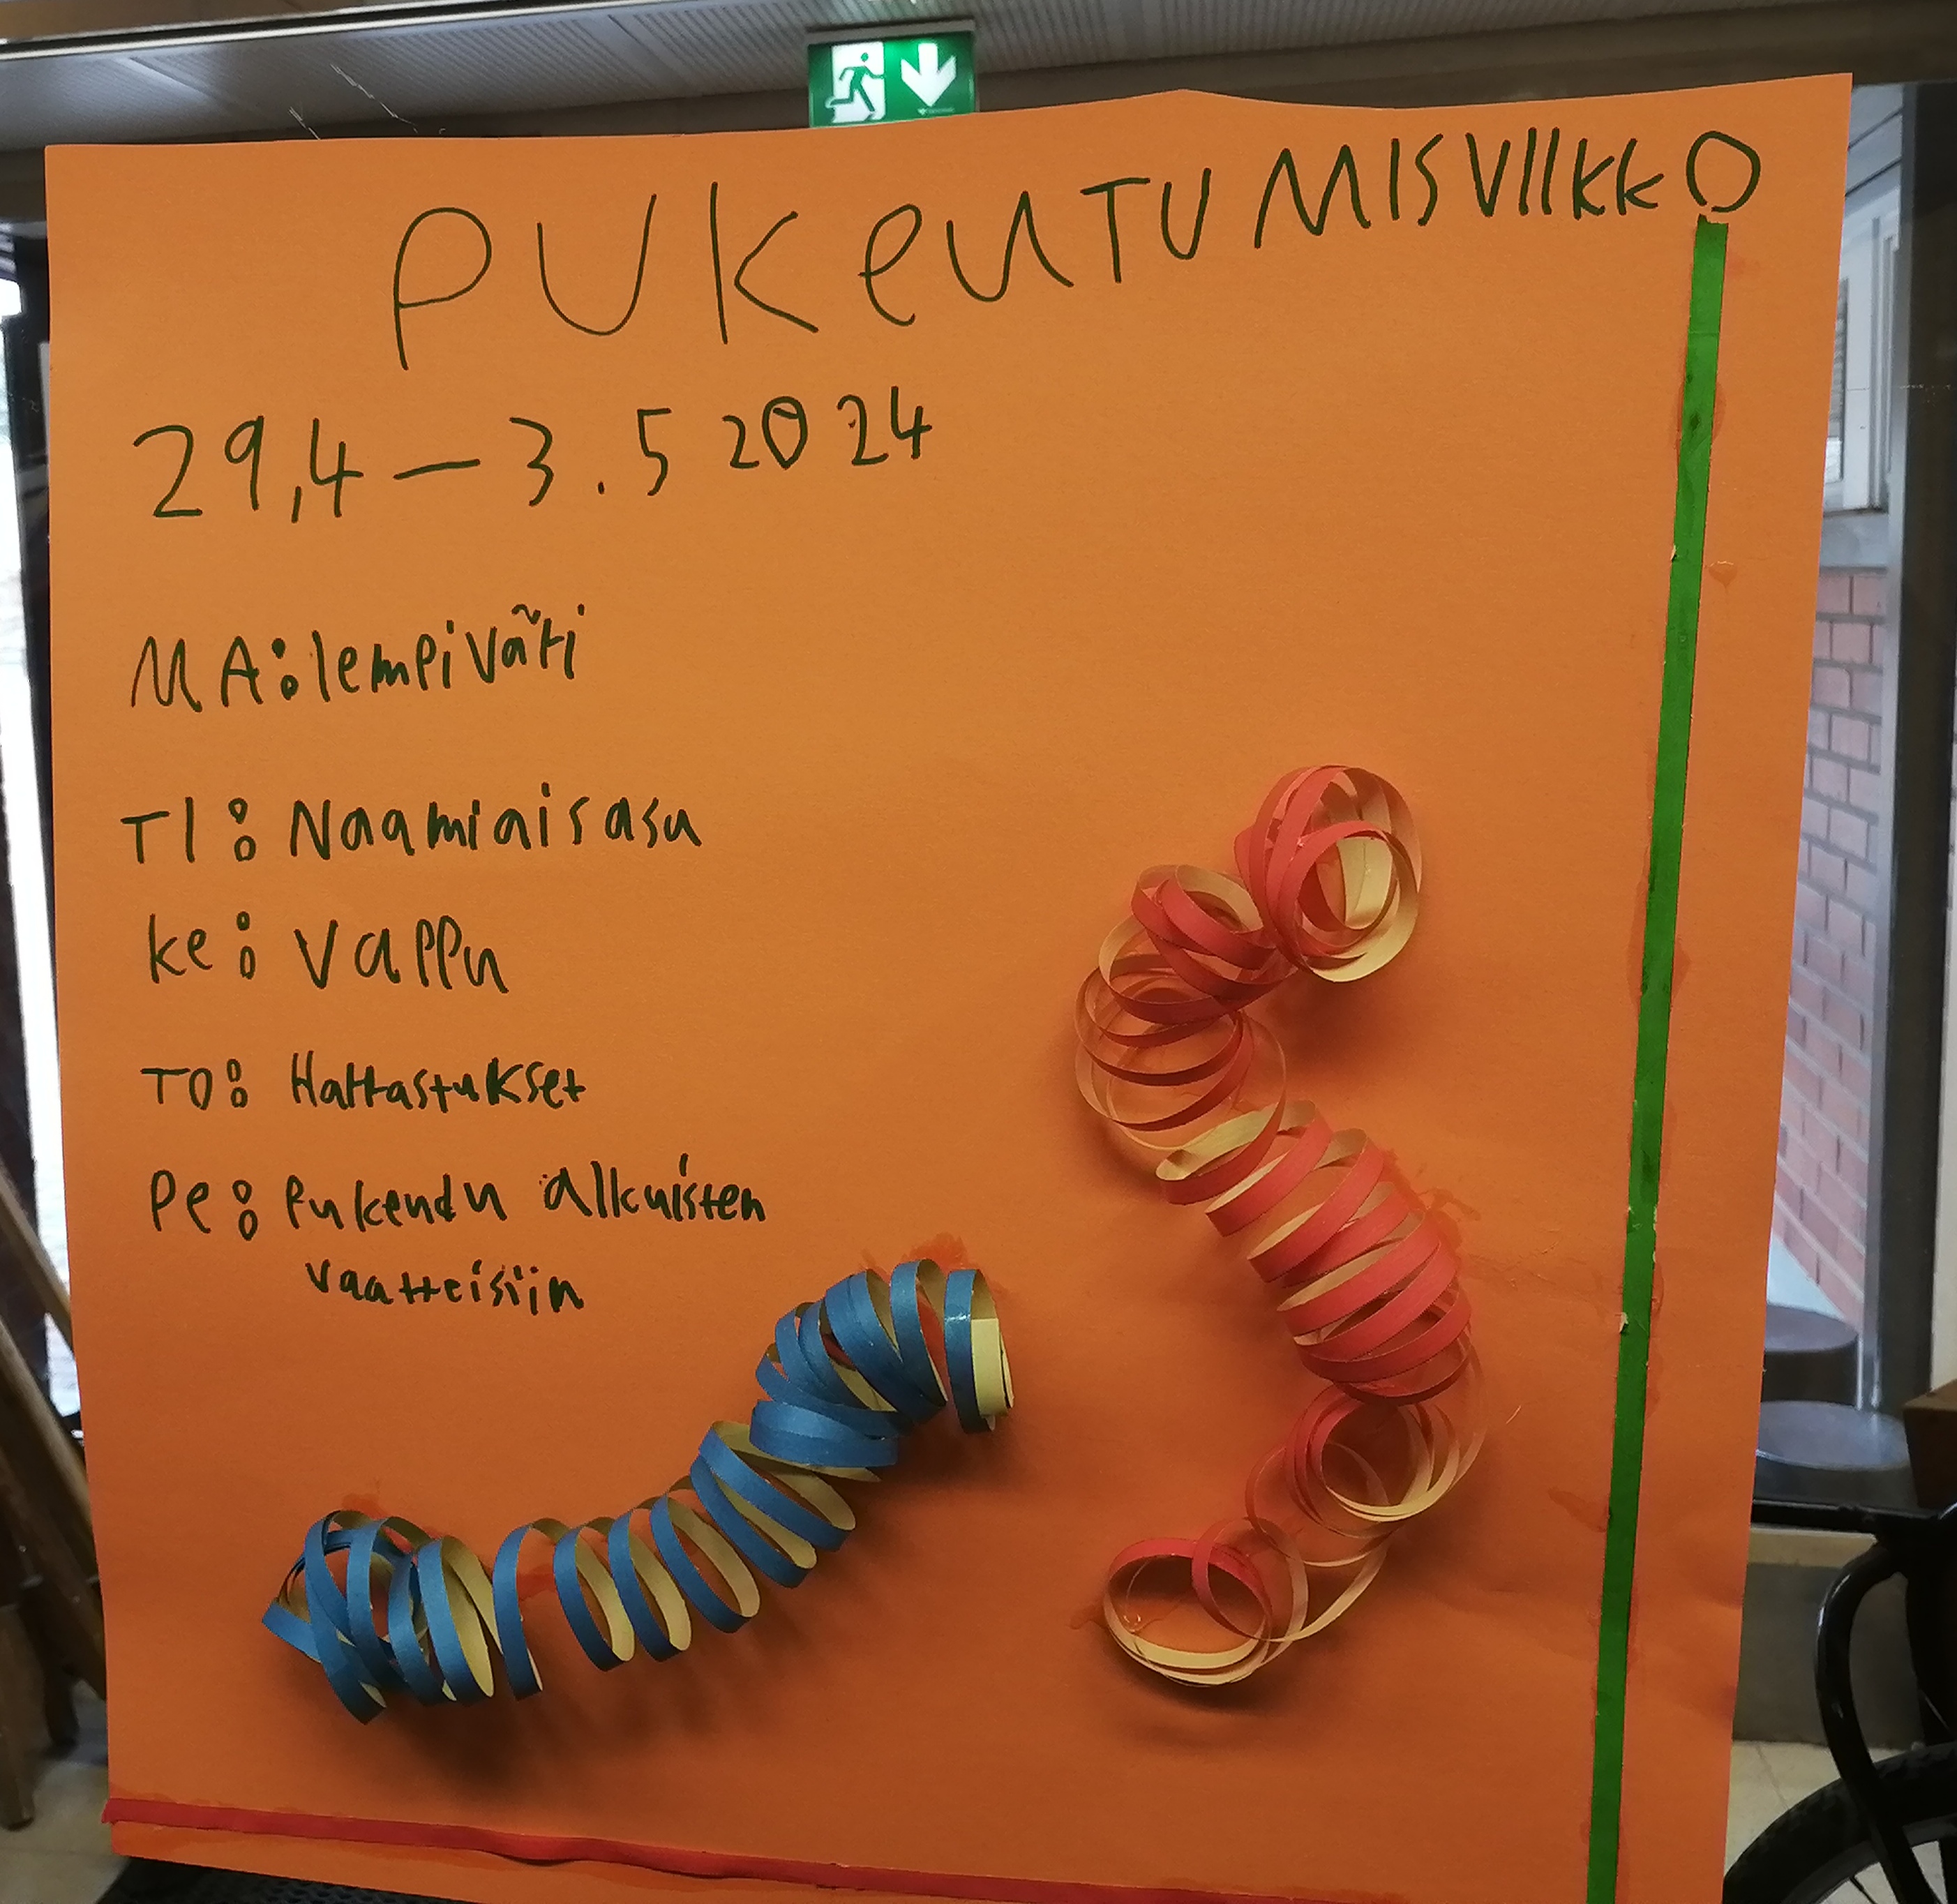 PUKeUTUMISVIIKKO
29,4 – 3.5 2024
MA: lempiväri
TI: Naamiaisasu
ke: Vappu
TO: Hattastukset
Pe: Pukeudu alkuisten
vaatteisiin